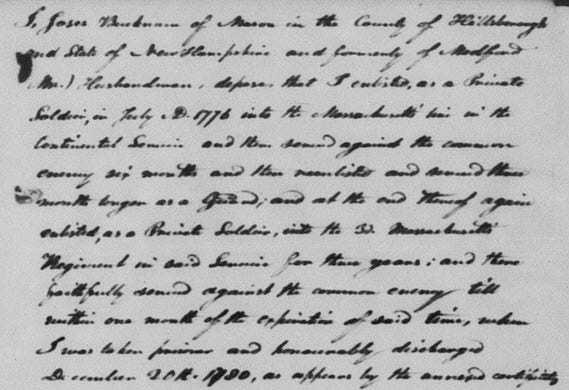 I, Joses Bucknam of Mason in the County of Hillsborough
and State of New Hampshire and formerly of Medford
Ms.) Husbandman, depose that I enlisted, as a Private
Soldier, in July AD. 1776 into the Massachusetts line in the
Continental Service and then served against the common
enemy six months and then reenlisted and served three
months longer as a Guard; and at the end thereof again
enlisted, as a Private Soldier, into the 3d. Massachusetts
Regiment in said Service for three years; and there
faithfully served against the common enemy till
within one month of the expiration of said time, when
I was taken prisoner and honourably discharged
December 20th. 1780, as appears by the annexed certificate,